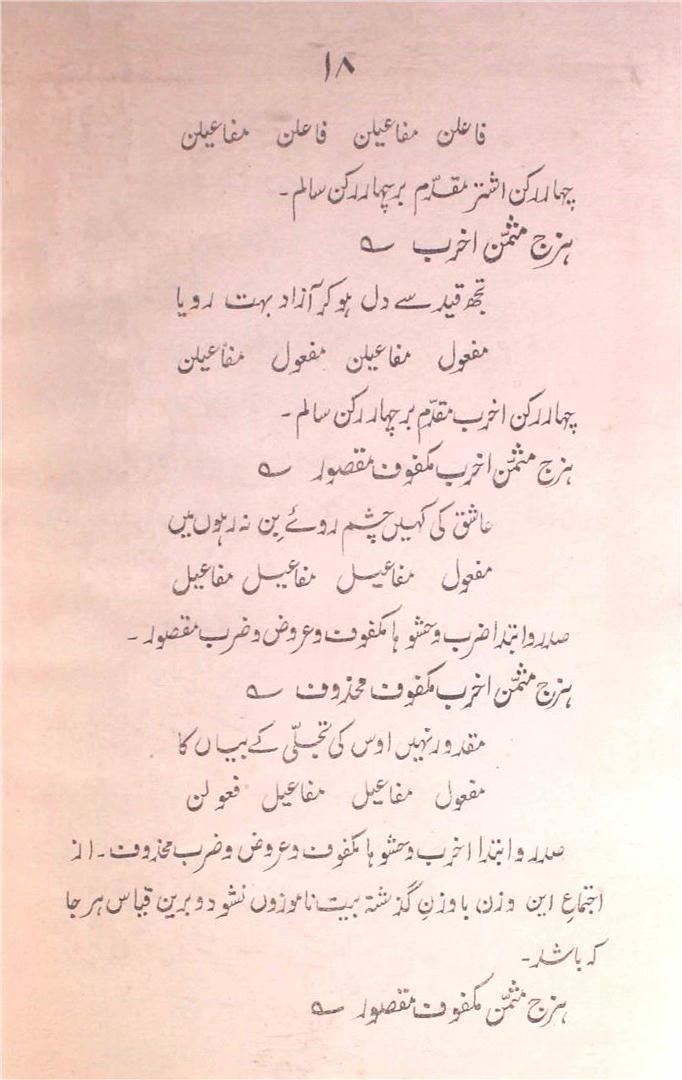 ۱۸
فاعلن مفاعیلن فاعلن مفاعیلن
چہار رکن اشتر مقدّم بر چہار رکن سالم۔
ہزج مثمّن اخرب ؎
تجھ قید سے دل ہو کر آزاد بہت رویا
مفعول مفاعیلن مفعول مفاعیلن
چہار رکن اخرب مقدّم بر چہار رکن سالم۔
ہزج مثمّن اخرب مکفوف مقصور ؎
عاشق کی کہیں چشم روئے بِن نہ رہوں میں
مفعول مفاعیل مفاعیل مفاعیل
صدر و ابتدا ضرب و حشو ہا مکفوف و عروض و ضرب مقصور۔
ہزج مثمّن اخرب مکفوف محذوف ؎
مقدور نہیں اوس کی تجلّی کے بیاں کا
مفعول مفاعیل مفاعیل فعولن
صدر و ابتدا اخرب و حشو ہا مکفوف و عروض و ضرب محذوف۔ از
اجتماعِ این وزن با وزنِ گذشتہ بیت ناموزوں نشود و برین قیاس ہر جا
کہ باشد۔
ہزج مثمّن مکفوف مقصور ؎